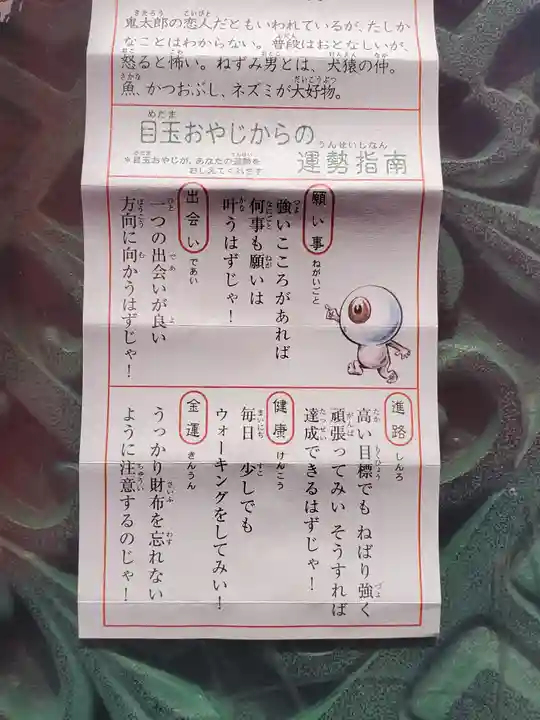 鬼太郎の恋人だともいわれているが、たしか
なことはわからない。普段はおとなしいが、
怒ると怖い。ねずみ男とは、犬猿の仲。
魚、かつおぶし、ネズミが大好物。
目玉おやじからの
運勢指南
*目玉おやじが、あなたの運勢を
おしえてくれます
願い事 ねがいごと
強いこころがあれば
何事も願いは
叶うはずじゃ!
出会い であい
一つの出会いが良い
方向に向かうはずじゃ!
進路 しんろ
高い目標でも ねばり強く
頑張ってみい そうすれば
達成できるはずじゃ!
健康 けんこう
毎日 少しでも
ウォーキングをしてみい!
金運 きんうん
うっかり財布を忘れない
ように注意するのじゃ!